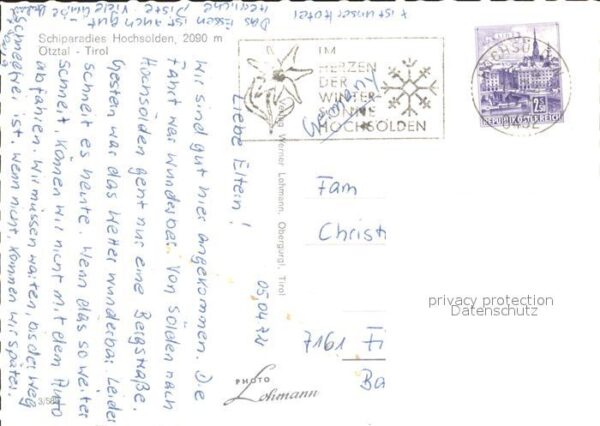 Schiparadies Hochsölden, 2090 m
Ötztal - Tirol
05.04.72
Liebe Eltern!
Wir sind gut hier angekommen. Die
Fahrt war wunderbar. Von Sölden nach
Hochsölden geht nur eine Bergstraße.
Gestern war das Wetter wunderbar. Leider
schneit es heute. Wenn das so weiter
schneit können wir nicht mit dem Auto
abfahren. Wir müssen warten, bis der Weg
schneefrei ist, wenn nicht kommen wir später.
Das Essen ist auch gut -
herrliche Piste
viele
x ist unser Hotel
Verlag Werner Lohmann, Obergurgl, Tirol
PHOTO
Lohmann
IM
HERZEN
DER
WINTER-
SONNE
HOCHSÖLDEN
Germany
HOCHSÖLDEN
6452
2S
REPUBLIK ÖSTERREICH
Fam
Christ
7161 Fi
Ba
privacy protection
Datenschutz